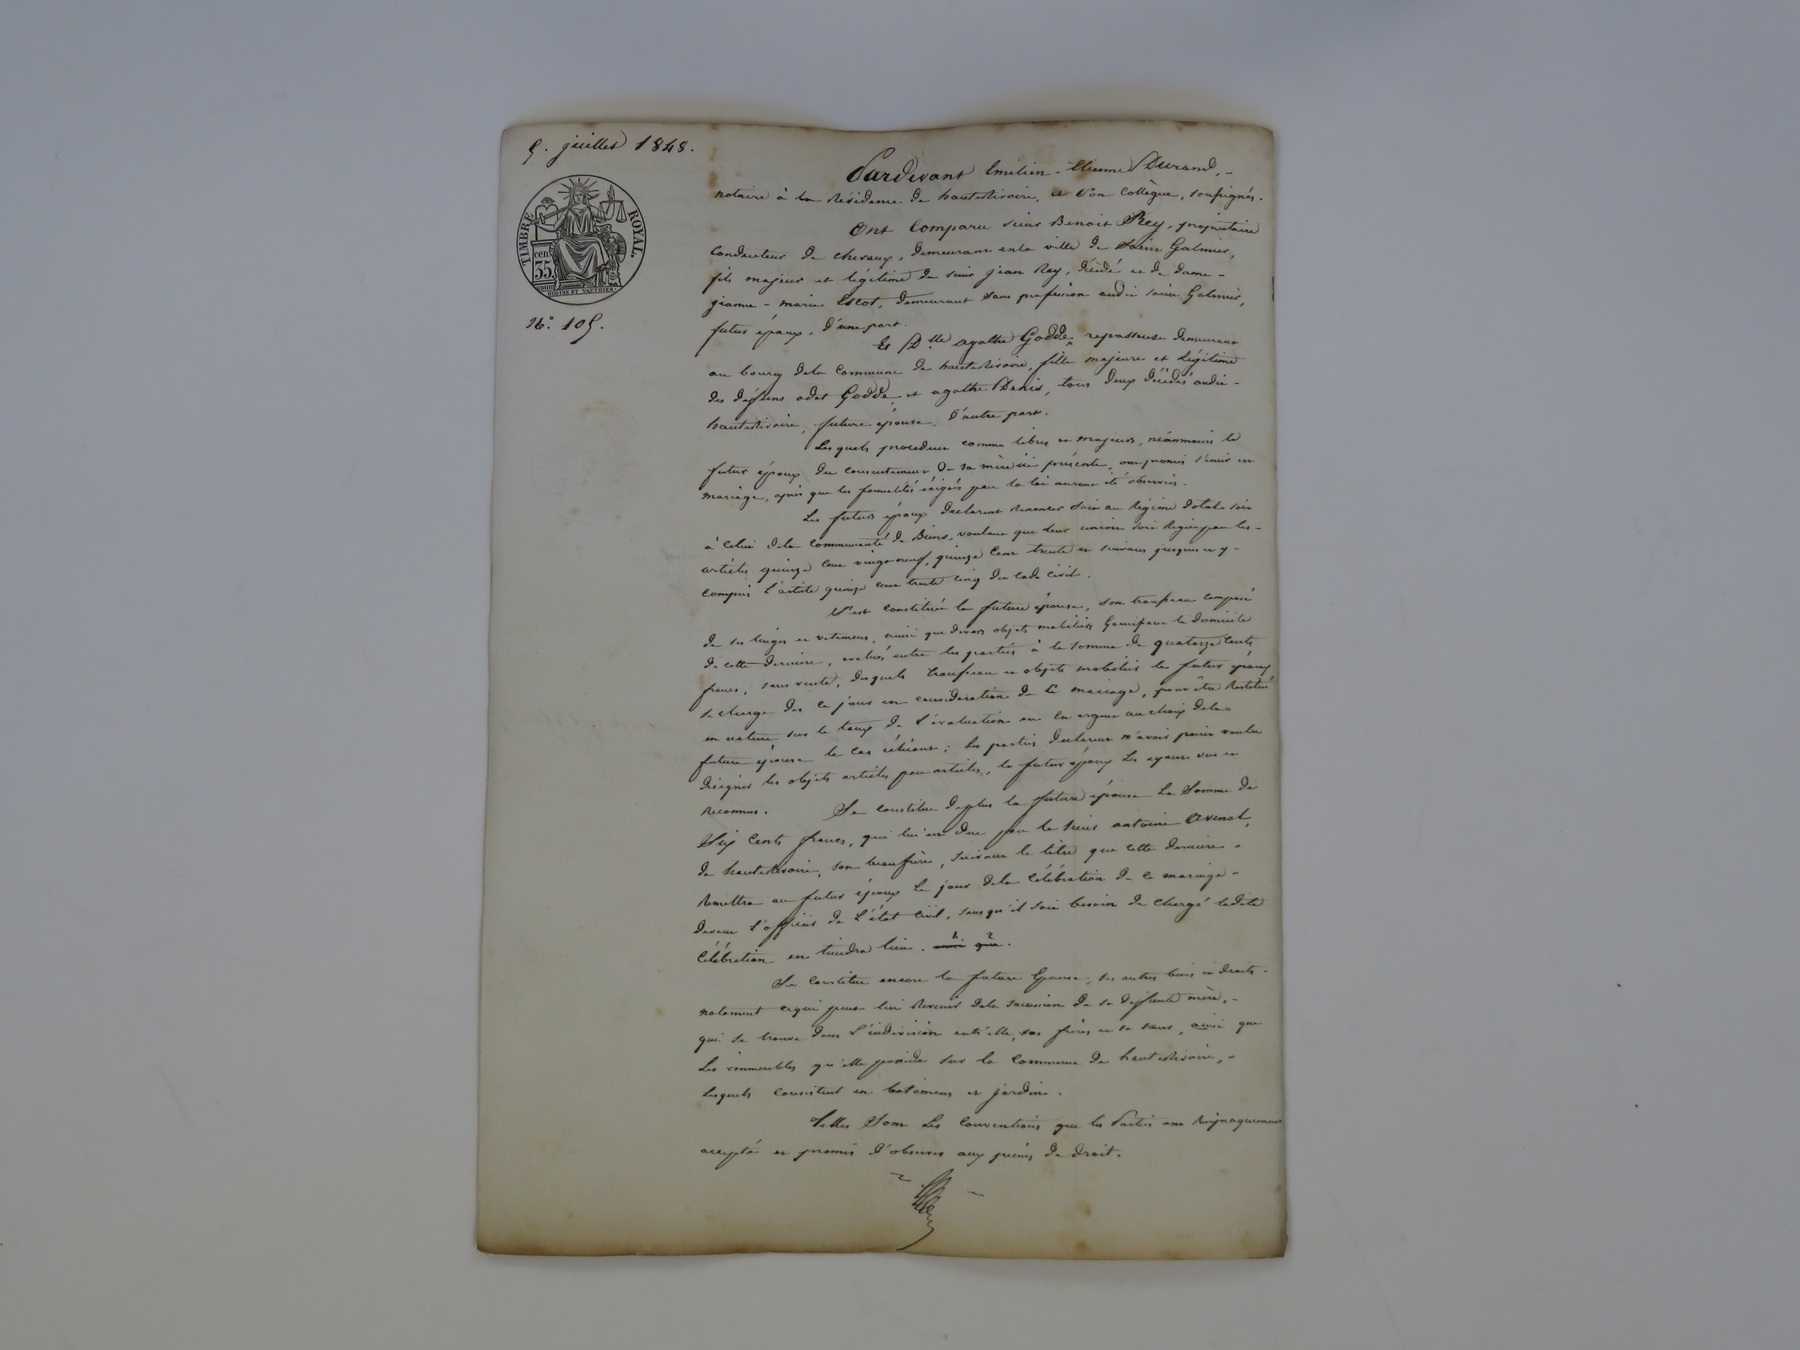 5. juillet 1848.
TIMBRE ROYAL.
cent. 35
N.° 105.
Pardevant Emilien-Etienne Durand,-
notaire à la Résidence de hauterivoire, et son collègue, soussignés.
Ont comparu sieur Benoit Rey, propriétaire
conducteur de chevaux, demeurant en la ville de Saint Galmier,
fils majeur et légitime de sieur jean Rey, décédé et de dame-
jeanne-marie Escot, demeurant sans profession audit saint Galmier,
futur époux, d'une part.
Et D.lle agathe Godde, repasseuse demeurant
au bourg de la Commune de hauterivoire, fille majeure et légitime
des défunts odet Godde et agathe Denis, tous deux décédés audit-
hauterivoire, future épouse, d'autre part.
Lesquels procédant comme libres et majeurs, néanmoins le
futur époux du consentement de sa mère ici présente, ont promis s'unir en
mariage, après que les formalités éxigées par la loi auront été observées.
Les futurs époux déclarent renoncer soit au Régime dotal soit
à celui de la communauté de Biens, voulant que leur union soit Régie par les-
articles quinze cent vingt neuf, quinze cent trente et suivans jusques et y-
compris l'article quinze cent trente cinq du code civil.
S'est constituée la future épouse, son trousseau composé
de ses linges et vetemens, ainsi que divers objets mobiliers garnissant le domicile
de cette dernière, évalués entre les parties à la somme de quatorze cents
francs, sans vente, desquels trousseau et objets mobiliers le futur époux
se charge dès ce jour en considération de ce mariage, pour être Restitués
en nature sur le taux de l'évaluation ou en argent au choix de la
future épouse le cas échéant; les parties déclarent n'avoir point voulu
désigner les objets articles par articles, le futur époux les ayant vus et
reconnus. Se constitue de plus la future épouse la Somme de
Six cents francs, qui lui est due par le sieur antoine Avenat,
de hauterivoire, son beaufrère, suivant le titre que cette dernière-
Remettra au futur époux le jour de la Célébration de ce mariage-
devant l'officier de l'état civil, sans qu'il soit besoin de chargé ladite
célébration en tiendra lieu. ainsi que.
Se constitue encore la future épouse, ses autres biens et droits-
notament ce qui peut lui Revenir de la succession de sa defunte mère,-
qui se trouve dans l'indivision entr'elle, ses frères et sa sœur, ainsi que
les immeubles qu'elle possède sur la commune de hauterivoire,-
lesquels consistent en batimens et jardin.
Telles Sont les conventions que les Parties ont Réciproquement
accepté et promis d'observer aux peines de droit.